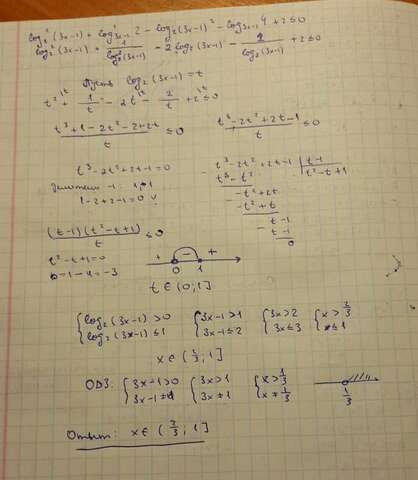 log₂²(3x-1) + log²₃ₓ₋₁ 2 - log₂(3x-1)² - log₃ₓ₋₁ 4 + 2 ≤ 0
log₂²(3x-1) + 1/log₂²(3x-1) - 2log₂(3x-1) - 2/log₂(3x-1) + 2 ≤ 0
Пусть log₂(3x-1) = t
t² + 1/t - 2t - 2/t + 2 ≤ 0
(t³ + 1 - 2t² - 2 + 2t)/t ≤ 0
(t³ - 2t² + 2t - 1)/t ≤ 0
t³ - 2t² + 2t - 1 = 0
1 - 2 + 2 - 1 = 0 ∨
t³ - 2t² + 2t - 1 | t - 1
t³ - t² | t² - t + 1
-t² + 2t
-t² + t
t - 1
t - 1
0
(t-1)(t² - t + 1)/t ≤ 0
t² - t + 1 = 0
D = 1 - 4 = -3
+ - +
0 1
t ∈ (0; 1]
{log₂(3x-1) > 0 {3x-1 > 1 {3x > 2 {x > 2/3
{log₂(3x-1) ≤ 1 {3x-1 ≤ 2 {3x ≤ 3 {x ≤ 1
x ∈ (2/3; 1]
ОДЗ: {3x-1 > 0 {3x > 1 {x > 1/3
{3x-1 ≠ {3x ≠ 1 {x ≠ 1/3
1/3
Ответ: x ∈ (2/3; 1]